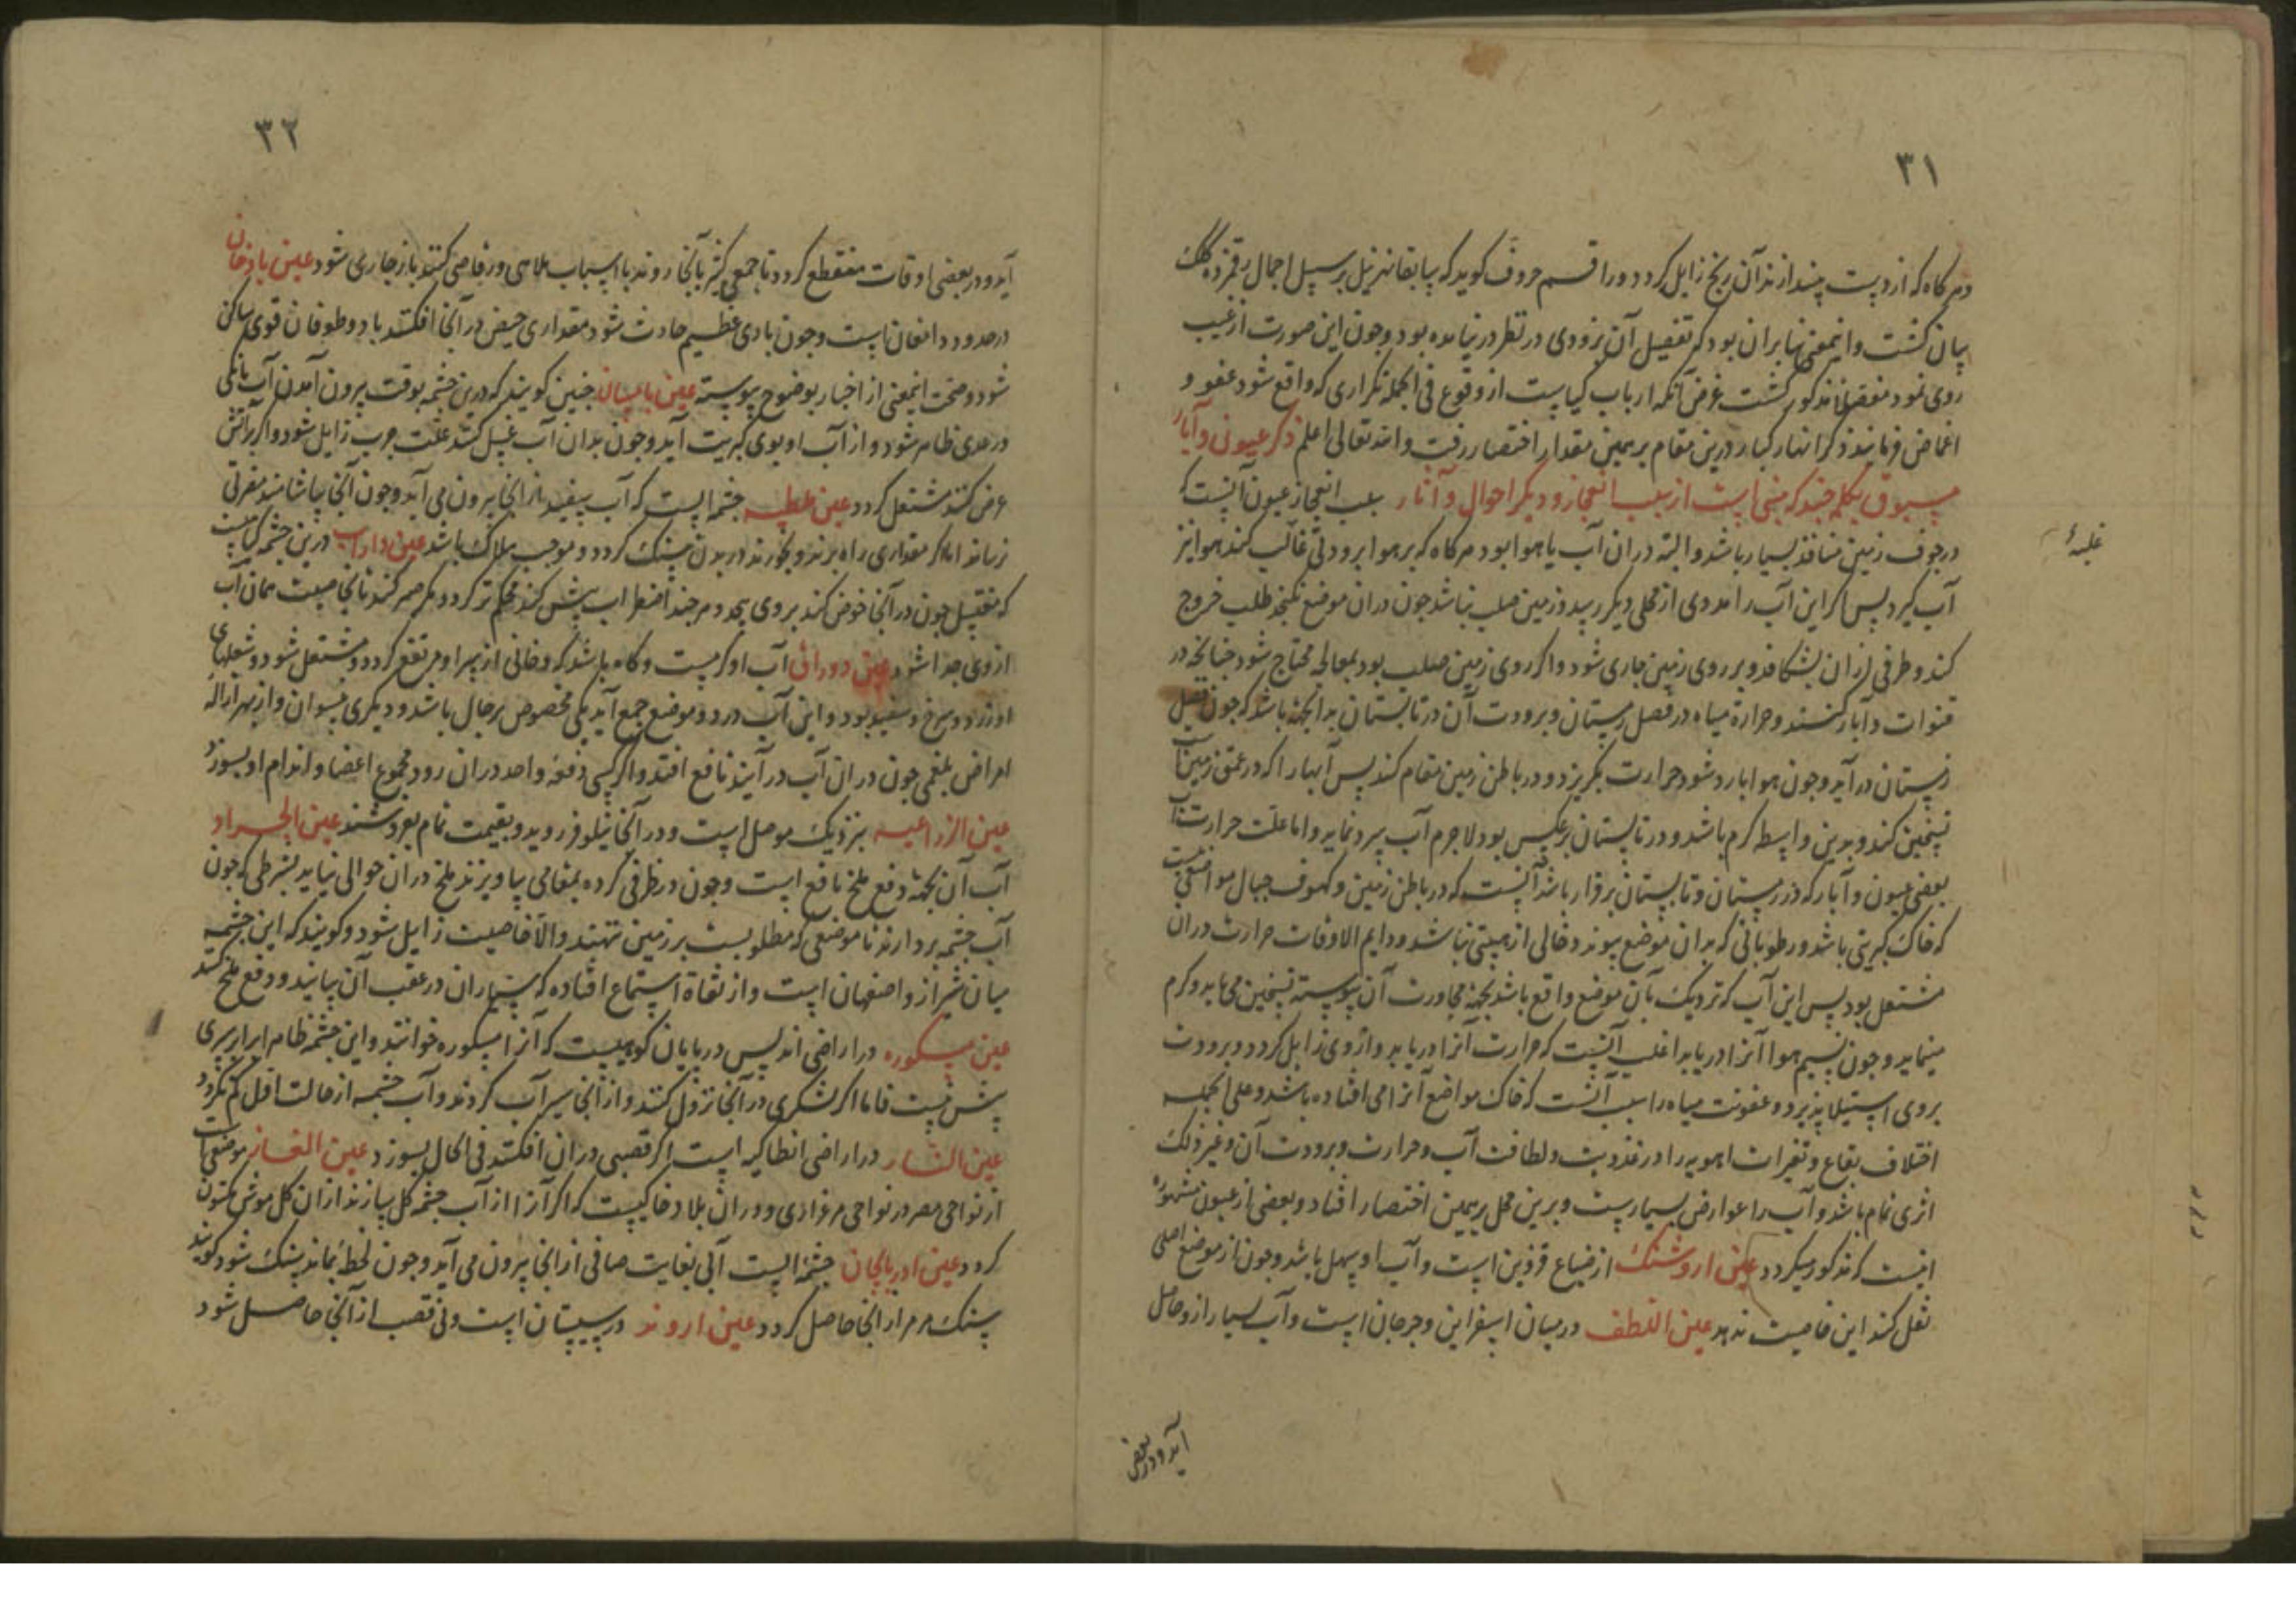 ۳۱
هر کاه که از دست بیندازند آن رنج زایل کردد و راقم حروف کوید که سابقا نهر نیل بر سبیل اجمال رقمزده کلک
بیان کشت و اینمعنی بنا بران بود که تفصیل آن بزودی در نظر در نیامده بود و چون این صورت از غیب
روی نمود مفصلا مذکور کشت غرض آنکه ارباب کیاست از وقوع فی الجمله تکراری که واقع شود عفو و
اغماض فرمایند ذکر انهار کبار درین مقام بر همین مقدار اختصار رفت و الله تعالی اعلم ذکر عیون و آبار
مسبوق بکلمه چند که مبنی است از سبب انفجار و دیکر احوال و آثار سبب انفجار عیون آنست که
در جوف زمین منافذ بسیار باشد و البته دران آب یا هوا بود هر کاه که بر هوا برودتی غالب کند هوا نیز
غلبه
آب کیرد پس اکر این آب را مددی از محلی دیکر رسد و زمین صلب نباشد چون دران موضع نکنجد طلب خروج
کند و طرفی ازان بشکافد و بر روی زمین جاری شود و اکر روی زمین صلب بود بمعالجه محتاج شود چنانچه در
قنوات و آبار کنند و حرارة میاه در فصل زمستان و برودت آن در تابستان بدانجهة باشد که چون فصل
زمستان در آید و چون هوا بارد شود حرارت بکریزد و در باطن زمین مقام کند پس آبها را که در عمق زمین است
تسخین کند و بدین واسطه کرم باشد و در تابستان برعکس بود لاجرم آب سرد نماید و اما علت حرارت آب
بعضی عیون و آبار که در زمستان و تابستان برقرار باشد آنست که در باطن زمین و کهوف جبال مواضعی است
که خاک کبریتی باشد و رطوباتی که بدان موضع پیوندد خالی از دهنیتی نباشد و دایم الاوقات حرارت دران
مشتعل بود پس این آب که نزدیک بآن موضع واقع باشد بجهة مجاورت آن پیوسته تسخین می یابد و کرم
مینماید و چون نسیم هوا آنرا دریابد اغلب آنست که حرارت آنرا دریابد و ازوی زایل کردد و برودت
بروی استیلا پذیرد و عفونت میاه را سبب آنست که خاک مواضع آنرا می افتاده باشد و علی الجمله
اختلاف بقاع و تغیرات اهویه را در عذوبت و لطافت آب و حرارت و برودت آن و غیر ذلک
اثری تمام باشد و آب را عوارض بسیارست و برین محل بر همین اختصار افتاد و بعضی از عیون مشهوره
اینست که مذکور میکردد عین اروشنک از ضیاع قزوین است و آب او مسهل باشد و چون از موضع اصلی
نقل کنند این خاصیت ندهد عین اللطف در میان اسفراین و جرجان است و آب بسیار ازو حاصل
آید و در بعضی
۳۲
آید و در بعضی اوقات منقطع کردد تا جمعی کثیر بآنجا روند با اسباب ملاهی و رقاصی کنند باز جاری شود عین بادخان
در حدود دامغان است و چون بادی عظیم حادث شود مقداری حیض در آنجا افکنند باد و طوفان قوی ساکن
شود و صحت اینمعنی از اخبار بوضوح پیوسته عین بامیان چنین کویند که درین چشمه بوقت بیرون آمدن آب بانکی
و رعدی ظاهر شود و از آب او بوی کبریت آید و چون بدان آب غسل کنند علت جرب زایل شود و اکر بر آتش
عرض کنند مشتعل کردد عین عطیه چشمه ایست که آب سفید از انجا بیرون می آید و چون آنجا بیاشامند مضرتی
نرساند اما اکر مقداری راه برند و بخورند در بدن سنک کردد و موجب هلاک باشد عین داراب درین چشمه کیاهیست
که مغتسل چون در آنجا خوض کند بروی پیچد و هر چند اضطراب بیش کند محکم تر کردد و مکر صبر کند تا بخاصیت همان آب
ازوی جدا شود عین دوراق آب او کرمست و کاه باشد که دخانی از بهر او مرتفع کردد و مشتعل شود و شعلهای
او زرد و سرخ و سفید بود و این آب در دو موضع جمع آید یکی مخصوص برجال باشد و دیکری بنسوان و از بهر ازاله
امراض بلغمی چون دران آب در آیند نافع افتد و اکر کسی دفعة واحد دران رود مجموع اعضا و اندام او بسوزد
عین الزراعیه بنزدیک موصل است و در آنجا نیلوفر روید و بقیمت تمام بفروشند عین الجراد
آب آن بجهة دفع ملخ نافع است و چون در ظرفی کرده بمقامی بیاویزند ملخ دران حوالی نیاید بشرطی که چون
آب چشمه بردارند تا موضعی که مطلوبست بر زمین ننهند والا خاصیت زایل شود و کویند که این چشمه
میان شیراز و اصفهان است و از ثقاة استماع افتاده که سیاران در عقب آن بیایند و دفع ملخ کنند
عین میسکوره در اراضی اندلس در پایان کوهیست که آنرا میسکوره خوانند و این چشمه ظاهرا بر سری
بیش نیست فاما اکر لشکری در آنجا نزول کنند و از آنجا سیر آب کردند و آب چشمه از حالت اول کم نکردد
عین النار در اراضی انطاکیه است اکر قصبی دران افکنند فی الحال بسوزد عین الفار موضعی است
از نواحی مصر در نواحی مرغزاری و دران بلاد خاکیست که اکر آنرا از آب چشمه کل سازند ازان کل موش متکون
کردد عین ادربایجان چشمه ایست آبی بغایت صافی از انجا بیرون می آید و چون لحظه بماند سنک شود کویند
سنک مرمر از انجا حاصل کردد عین اروند در سیستان است و نی قصب از آنجا حاصل شود